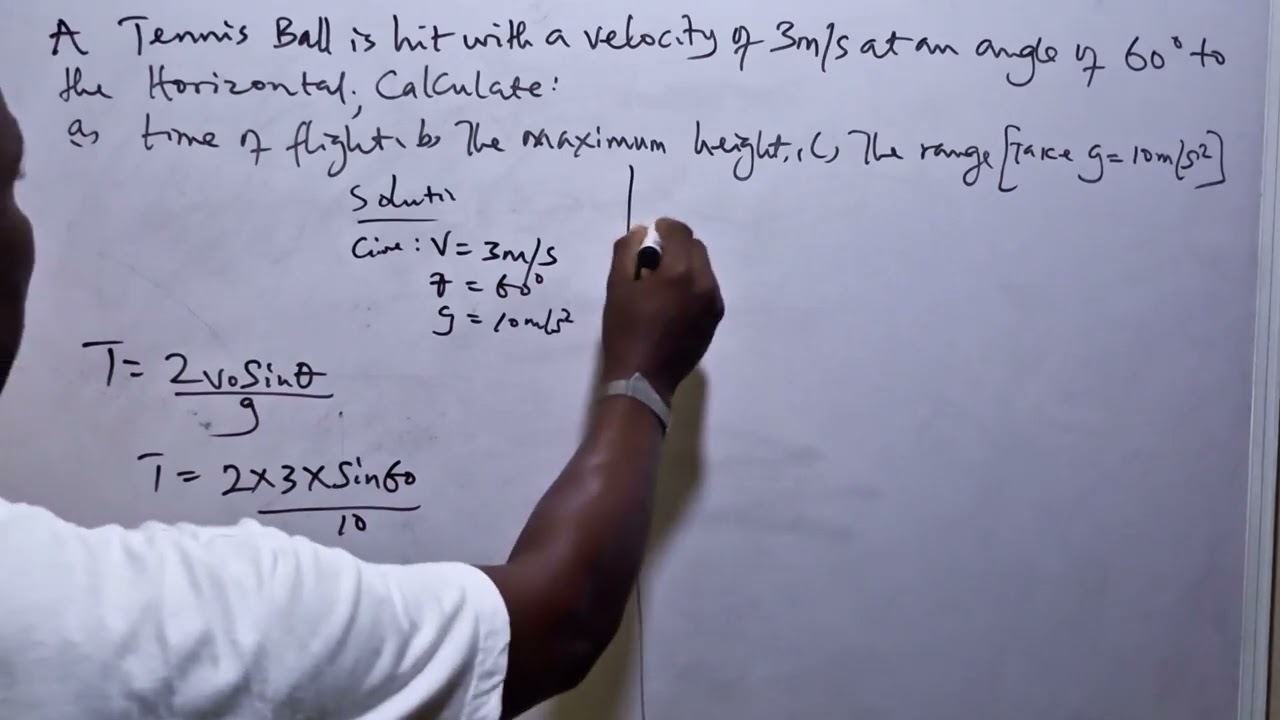 A Tennis Ball is hit with a velocity of 3m/s at an angle of 60° to
the Horizontal, Calculate:
a, time of flight, b, The maximum height, (, The range [Take g = 10m/s²]
Solutn
Give: V = 3m/s
= 60°
g = 10m/s²
T = 2V₀Sinθ
g
T = 2×3×Sin60
10